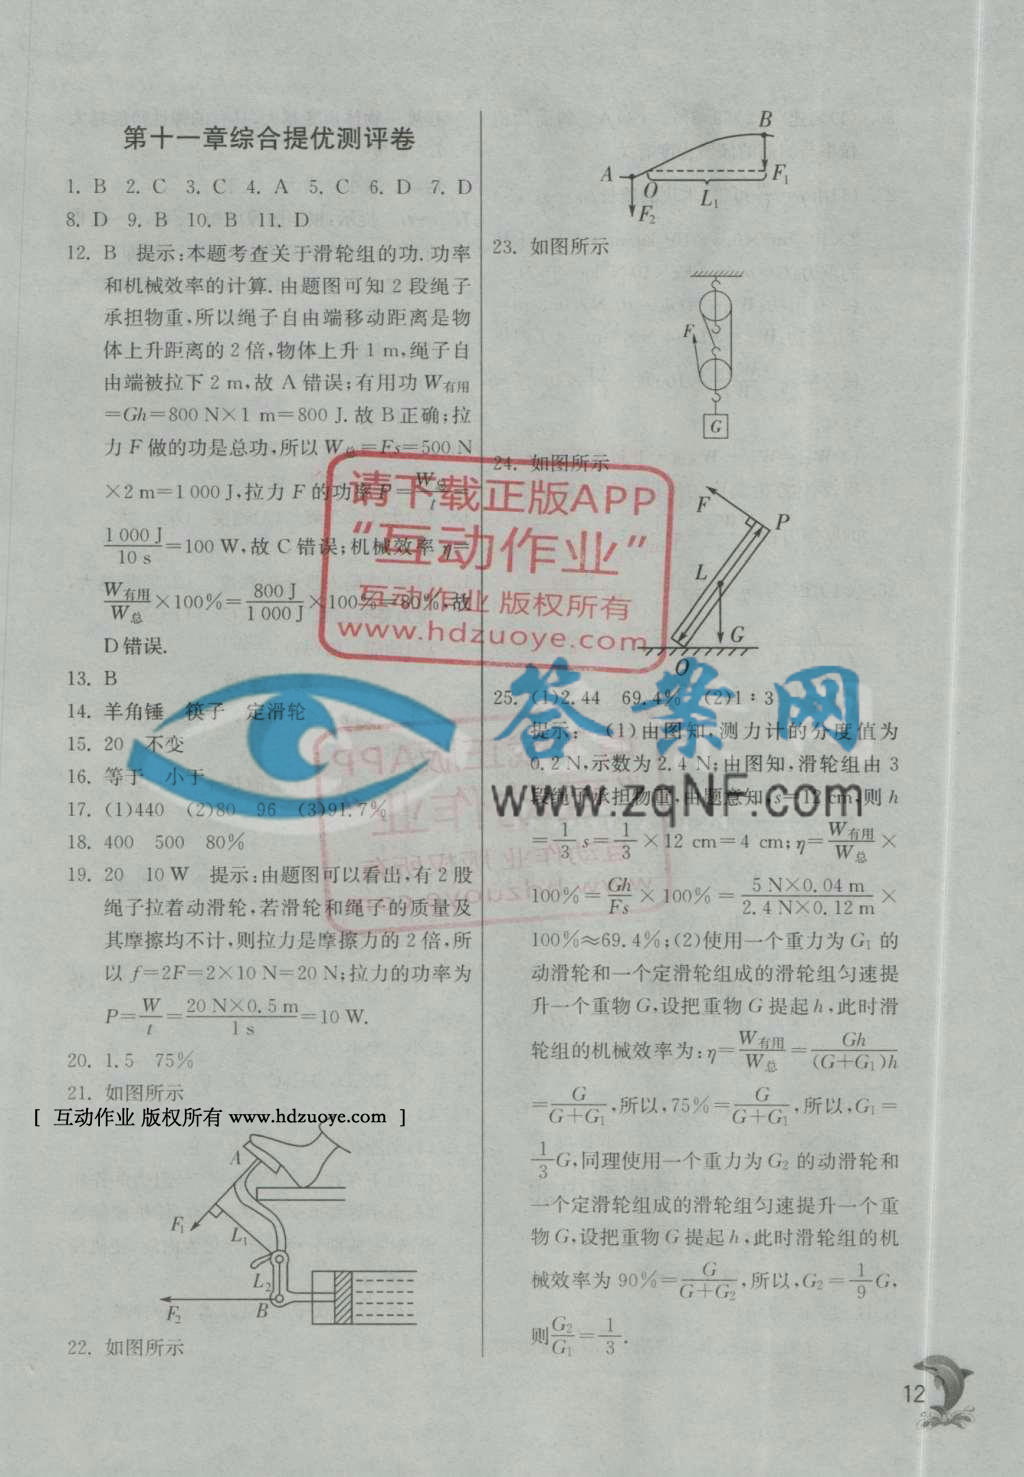 第十一章综合提优测评卷
1. B 2. C 3. C 4. A 5. C 6. D 7. D
8. D 9. B 10. B 11. D
12. B 提示:本题考查关于滑轮组的功、功率
和机械效率的计算. 由题图可知 2 段绳子
承担物重,所以绳子自由端移动距离是物
体上升距离的 2 倍,物体上升 1 m,绳子自
由端被拉下 2 m,故 A 错误;有用功 W有用
=Gh=800 N×1 m=800 J. 故 B 正确;拉
力 F 做的功是总功,所以 W总=Fs=500 N
×2 m=1 000 J,拉力 F 的功率 P=W总/t=
1 000 J/10 s=100 W,故 C 错误;机械效率 η=
W有用/W总×100%=800 J/1 000 J×100%=80%,故
D 错误.
13. B
14. 羊角锤 筷子 定滑轮
15. 20 不变
16. 等于 小于
17. (1)440 (2)80 96 (3)91.7%
18. 400 500 80%
19. 20 10 W 提示:由题图可以看出,有 2 股
绳子拉着动滑轮,若滑轮和绳子的质量及
其摩擦均不计,则拉力是摩擦力的 2 倍,所
以 f=2F=2×10 N=20 N;拉力的功率为
P=W/t=20 N×0.5 m/1 s=10 W.
20. 1.5 75%
21. 如图所示
[ 互动作业 版权所有 www.hdzuoye.com ]
A
F1
L1
L2
F2
B
22. 如图所示
B
A
O
F1
L1
F2
23. 如图所示
F
G
24. 如图所示
F
P
L
G
O
25. (1)2.44 69.4% (2)1∶3
提示: (1)由图知,测力计的分度值为
0.2 N,示数为 2.4 N;由图知,滑轮组由 3
段绳子承担物重,由题意知,s=12 cm,则 h
=1/3 s=1/3×12 cm=4 cm;η=W有用/W总×
100%=Gh/Fs×100%=5 N×0.04 m/2.4 N×0.12 m×
100%≈69.4%;(2)使用一个重力为 G1 的
动滑轮和一个定滑轮组成的滑轮组匀速提
升一个重物 G,设把重物 G 提起 h,此时滑
轮组的机械效率为:η=W有用/W总=Gh/(G+G1)h
=G/G+G1,所以,75%=G/G+G1,所以,G1=
1/3 G,同理使用一个重力为 G2 的动滑轮和
一个定滑轮组成的滑轮组匀速提升一个重
物 G,设把重物 G 提起 h,此时滑轮组的机
械效率为 90%=G/G+G2,所以,G2=1/9 G,
则 G2/G1=1/3.
12
请下载正版APP
“互动作业”
互动作业 版权所有
www.hdzuoye.com
答案网
www.zqNF.com